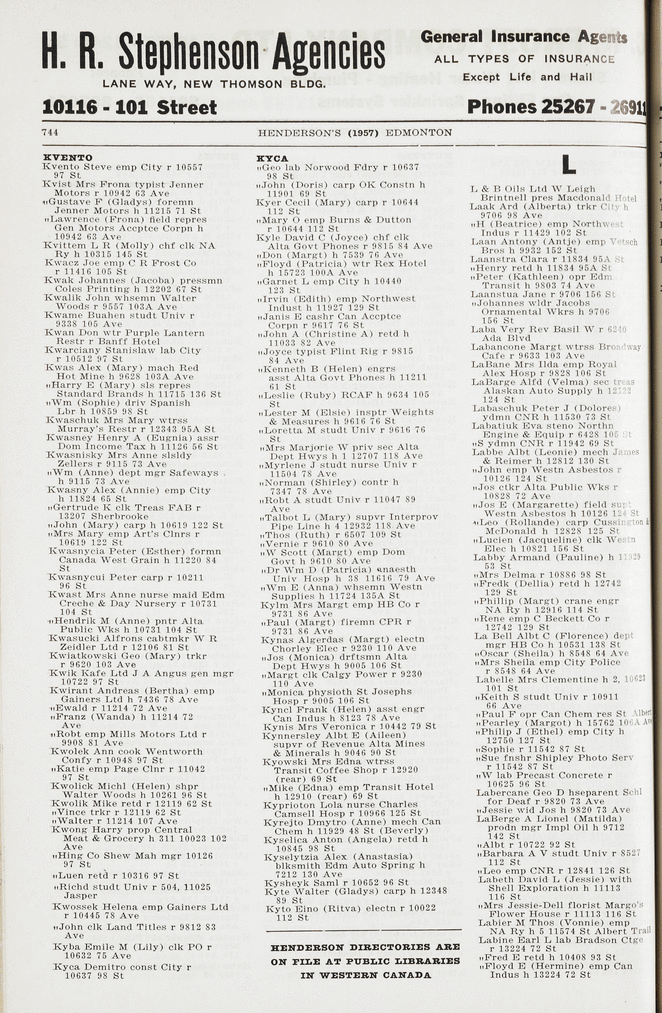 H. R. Stephenson Agencies
LANE WAY, NEW THOMSON BLDG.
10116 - 101 Street
General Insurance Agents
ALL TYPES OF INSURANCE
Except Life and Hail
Phones 25267 - 26911
744
HENDERSON'S (1957) EDMONTON
KVENTO
Kvento Steve emp City r 10557
97 St
Kvist Mrs Frona typist Jenner
Motors r 10942 63 Ave
„Gustave F (Gladys) foremn
Jenner Motors h 11215 71 St
„Lawrence (Frona) field repres
Gen Motors Accptce Corpn h
10942 63 Ave
Kvittem L R (Molly) chf clk NA
Ry h 10315 145 St
Kwacz Joe emp C R Frost Co
r 11416 105 St
Kwak Johannes (Jacoba) pressmn
Coles Printing h 12202 67 St
Kwalik John whsemn Walter
Woods r 9557 103A Ave
Kwame Buahen studt Univ r
9338 105 Ave
Kwan Don wtr Purple Lantern
Restr r Banff Hotel
Kwarciany Stanislaw lab City
r 10512 97 St
Kwas Alex (Mary) mach Red
Hot Mine h 9628 103A Ave
„Harry E (Mary) sls repres
Standard Brands h 11715 136 St
„Wm (Sophie) driv Spanish
Lbr h 10859 98 St
Kwaschuk Mrs Mary wtrss
Murray's Restr r 12343 95A St
Kwasney Henry A (Eugnia) assr
Dom Income Tax h 11126 56 St
Kwasnisky Mrs Anne slsldy
Zellers r 9115 73 Ave
„Wm (Anne) dept mgr Safeways
h 9115 73 Ave
Kwasny Alex (Annie) emp City
h 11824 65 St
„Gertrude K clk Treas FAB r
13207 Sherbrooke
„John (Mary) carp h 10619 122 St
„Mrs Mary emp Art's Clnrs r
10619 122 St
Kwasnycia Peter (Esther) formn
Canada West Grain h 11220 84
St
Kwasnycui Peter carp r 10211
96 St
Kwast Mrs Anne nurse maid Edm
Creche & Day Nursery r 10731
104 St
„Hendrik M (Anne) pntr Alta
Public Wks h 10731 104 St
Kwasucki Alfrons cabtmkr W R
Zeidler Ltd r 12106 81 St
Kwiatkowski Geo (Mary) trkr
r 9620 103 Ave
Kwik Kafe Ltd J A Angus gen mgr
10722 97 St
Kwirant Andreas (Bertha) emp
Gainers Ltd h 7436 78 Ave
„Ewald r 11214 72 Ave
„Franz (Wanda) h 11214 72
Ave
„Robt emp Mills Motors Ltd r
9908 81 Ave
Kwolek Ann cook Wentworth
Confy r 10948 97 St
„Katie emp Page Clnr r 11042
97 St
Kwolick Michl (Helen) shpr
Walter Woods h 10261 96 St
Kwolik Mike retd r 12119 62 St
„Vince trkr r 12119 62 St
„Walter r 11214 107 Ave
Kwong Harry prop Central
Meat & Grocery h 311 10023 102
Ave
„Hing Co Shew Mah mgr 10126
97 St
„Luen retd r 10316 97 St
„Richd studt Univ r 504, 11025
Jasper
Kwossek Helena emp Gainers Ltd
r 10445 78 Ave
„John clk Land Titles r 9812 83
Ave
Kyba Emile M (Lily) clk PO r
10632 75 Ave
Kyca Demitro const City r
10637 98 St
KYCA
„Geo lab Norwood Fdry r 10637
98 St
„John (Doris) carp OK Constn h
11901 69 St
Kyer Cecil (Mary) carp r 10644
112 St
„Mary O emp Burns & Dutton
r 10644 112 St
Kyle David C (Joyce) chf clk
Alta Govt Phones r 9815 84 Ave
„Don (Margt) h 7539 76 Ave
„Floyd (Patricia) wtr Rex Hotel
h 15723 100A Ave
„Garnet L emp City h 10440
123 St
„Irvin (Edith) emp Northwest
Indust h 11927 129 St
„Janis E cashr Can Accptce
Corpn r 9617 76 St
„John A (Christine A) retd h
11033 82 Ave
„Joyce typist Flint Rig r 9815
84 Ave
„Kenneth B (Helen) engrs
asst Alta Govt Phones h 11211
61 St
„Leslie (Ruby) RCAF h 9634 105
St
„Lester M (Elsie) insptr Weights
& Measures h 9616 76 St
„Loretta M studt Univ r 9616 76
St
„Mrs Marjorie W priv sec Alta
Dept Hwys h 1 12707 118 Ave
„Myrlene J studt nurse Univ r
11504 78 Ave
„Norman (Shirley) contr h
7347 78 Ave
„Robt A studt Univ r 11047 89
Ave
„Talbot L (Mary) supvr Interprov
Pipe Line h 4 12932 118 Ave
„Thos (Ruth) r 6507 109 St
„Vernie r 9610 80 Ave
„W Scott (Margt) emp Dom
Govt h 9610 80 Ave
„Dr Wm D (Patricia) anaesth
Univ Hosp h 38 11616 79 Ave
„Wm E (Anna) whsemn Westn
Supplies h 11724 135A St
Kylm Mrs Margt emp HB Co r
9731 86 Ave
„Paul (Margt) firemn CPR r
9731 86 Ave
Kynas Algerdas (Margt) electn
Chorley Elec r 9230 110 Ave
„Jos (Monica) drftsmn Alta
Dept Hwys h 9005 106 St
„Margt clk Calgy Power r 9230
110 Ave
„Monica physioth St Josephs
Hosp r 9005 106 St
Kyncl Frank (Helen) asst engr
Can Indus h 8123 78 Ave
Kynis Mrs Veronica r 10442 79 St
Kynnersley Albt E (Aileen)
supvr of Revenue Alta Mines
& Minerals h 9046 90 St
Kyowski Mrs Edna wtrss
Transit Coffee Shop r 12920
(rear) 69 St
„Mike (Edna) emp Transit Hotel
h 12910 (rear) 69 St
Kyprioton Lola nurse Charles
Camsell Hosp r 10966 125 St
Kyrejto Dmytro (Anne) mech Can
Chem h 11929 48 St (Beverly)
Kyselica Anton (Angela) retd h
10845 98 St
Kyselytzia Alex (Anastasia)
blksmith Edm Auto Spring h
7212 130 Ave
Kysheyk Saml r 10652 96 St
Kyte Walter (Gladys) carp h 12348
89 St
Kyto Eino (Ritva) electn r 10022
112 St
HENDERSON DIRECTORIES ARE
ON FILE AT PUBLIC LIBRARIES
IN WESTERN CANADA
L
L & B Oils Ltd W Leigh
Brintnell pres Macdonald Hotel
Laak Ard (Alberta) trkr City h
9706 98 Ave
„H (Beatrice) emp Northwest
Indus r 11429 102 St
Laan Antony (Antje) emp Vetsch
Bros h 9932 152 St
Laanstra Clara r 11834 95A St
„Henry retd h 11834 95A St
„Peter (Kathleen) opr Edm
Transit h 9803 74 Ave
Laanstua Jane r 9706 156 St
„Johannes wldr Jacobs
Ornamental Wkrs h 9706
156 St
Laba Very Rev Basil W r 6240
Ada Blvd
Labancone Margt wtrss Broadway
Cafe r 9633 103 Ave
LaBane Mrs Ilda emp Royal
Alex Hosp r 9828 106 St
LaBarge Alfd (Velma) sec treas
Alaskan Auto Supply h
124 St
Labaschuk Peter J (Dolores)
ydmn CNR h 11530 73 St
Labatiuk Eva steno Northn
Engine & Equip r 6428 105 St
„S ydmn CNR r 11942 69 St
Labbe Albt (Leonie) mech James
& Reimer h 12812 130 St
„John emp Westn Asbestos r
10126 124 St
„Jos ctkr Alta Public Wks r
10828 72 Ave
„Jos E (Margarette) field supt
Westn Asbestos h 10126 124 St
„Leo (Rollande) carp Cussington &
McDonald h 12828 125 St
„Lucien (Jacqueline) clk Westn
Elec h 10821 156 St
Labby Armand (Pauline) h 11929
53 St
„Mrs Delma r 10886 98 St
„Fredk (Dellia) retd h 12742
129 St
„Phillip (Margt) crane engr
NA Ry h 12916 114 St
„Rene emp C Beckett Co r
12742 129 St
La Bell Albt C (Florence) dept
mgr HB Co h 10531 138 St
„Oscar (Sheila) h 8548 64 Ave
„Mrs Sheila emp City Police
r 8548 64 Ave
Labelle Mrs Clementine h 2, 10623
101 St
„Keith S studt Univ r 10911
66 Ave
„Paul F opr Can Chem res St Albert
„Pearley (Margot) h 15762 106A Ave
„Philip J (Ethel) emp City h
12750 127 St
„Sophie r 11542 87 St
„Sue fnshr Shipley Photo Serv
r 11542 87 St
„W lab Precast Concrete r
10625 96 St
Labercane Geo D hseparent Schl
for Deaf r 9820 73 Ave
„Jessie wid Jos h 9820 73 Ave
LaBerge A Lionel (Matilda)
prodn mgr Impl Oil h 9712
142 St
„Albt r 10722 92 St
„Barbara A V studt Univ r 8527
112 St
„Leo emp CNR r 12841 126 St
Labeth David L (Jessie) with
Shell Exploration h 11113
116 St
„Mrs Jessie-Dell florist Margo's
Flower House r 11113 116 St
Labier M Thos (Vonnie) emp
NA Ry h 5 11574 St Albert Trail
Labine Earl L lab Bradson Ctge
r 13224 72 St
„Fred E retd h 10408 93 St
„Floyd E (Hermine) emp Can
Indus h 13224 72 St